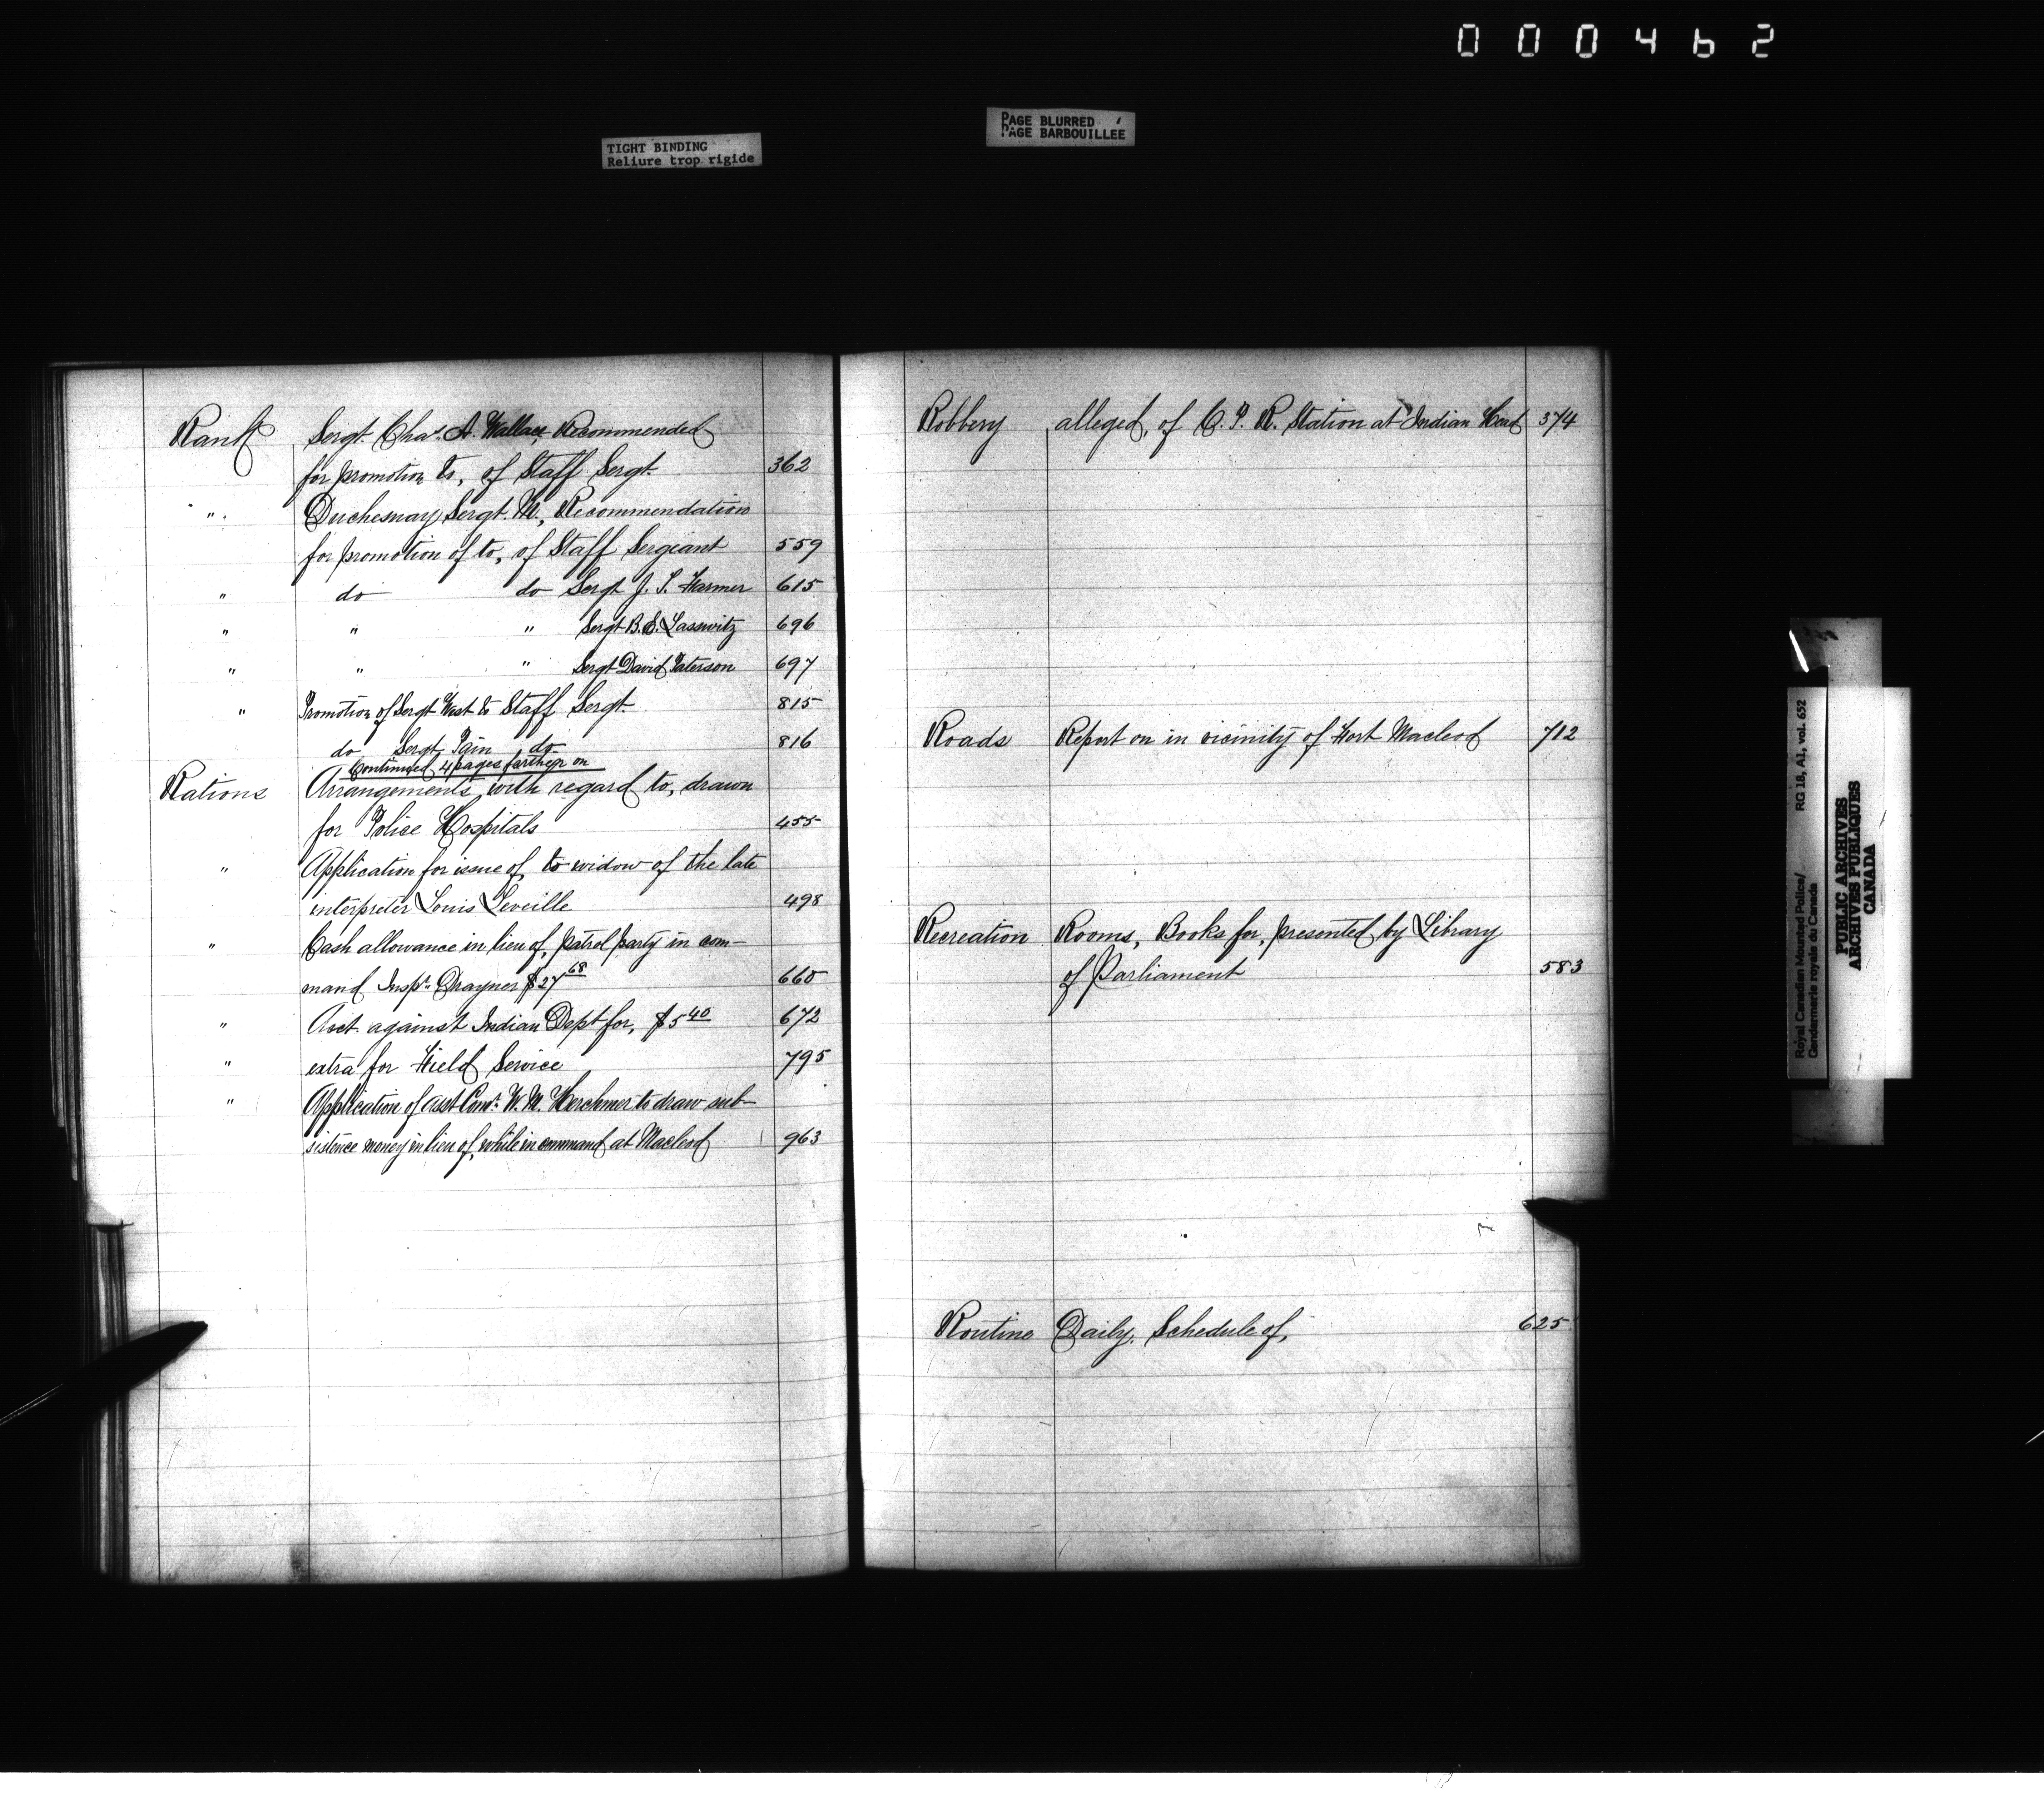 000462
TIGHT BINDING
Reliure trop rigide
PAGE BLURRED
PAGE BARBOUILLÉE
Rank Sergt. Chas. A. Wallace Recommended
for promotion to, of Staff Sergt. 362
" Duchesnay Sergt. M., Recommendation
for promotion of to, of Staff Sergeant 559
" do do Sergt J. S. Farmer 615
" " " Sergt B. S. Lasswitz 696
" " " Sergt David Paterson 697
" Promotion of Sergt West to Staff Sergt. 815
do Sergt Pain do 816
Continued 4 pages farther on
Rations Arrangements with regard to, drawn
for Police Hospitals 455
" Application for issue of, to widow of the late
interpreter Louis Leveille 498
" Cash allowance in lieu of, patrol party in com-
mand Inspr. Drayner $27 68 660
" Acct. against Indian Dept for, $5 40 672
" extra for Field Service 795
" Application of Asst Comr. W. M. Herchmer to draw sub-
sistence money in lieu of, while in command at Macleod 963
Robbery alleged, of C. P. R. Station at Indian Head 374
Roads Report on in vicinity of Fort Macleod 712
Recreation Rooms, Books for, presented by Library
of Parliament 583
Routine Daily, Schedule of, 625
Royal Canadian Mounted Police/ RG 18, A1, vol. 652
Gendarmerie royale du Canada
PUBLIC ARCHIVES
ARCHIVES PUBLIQUES
CANADA